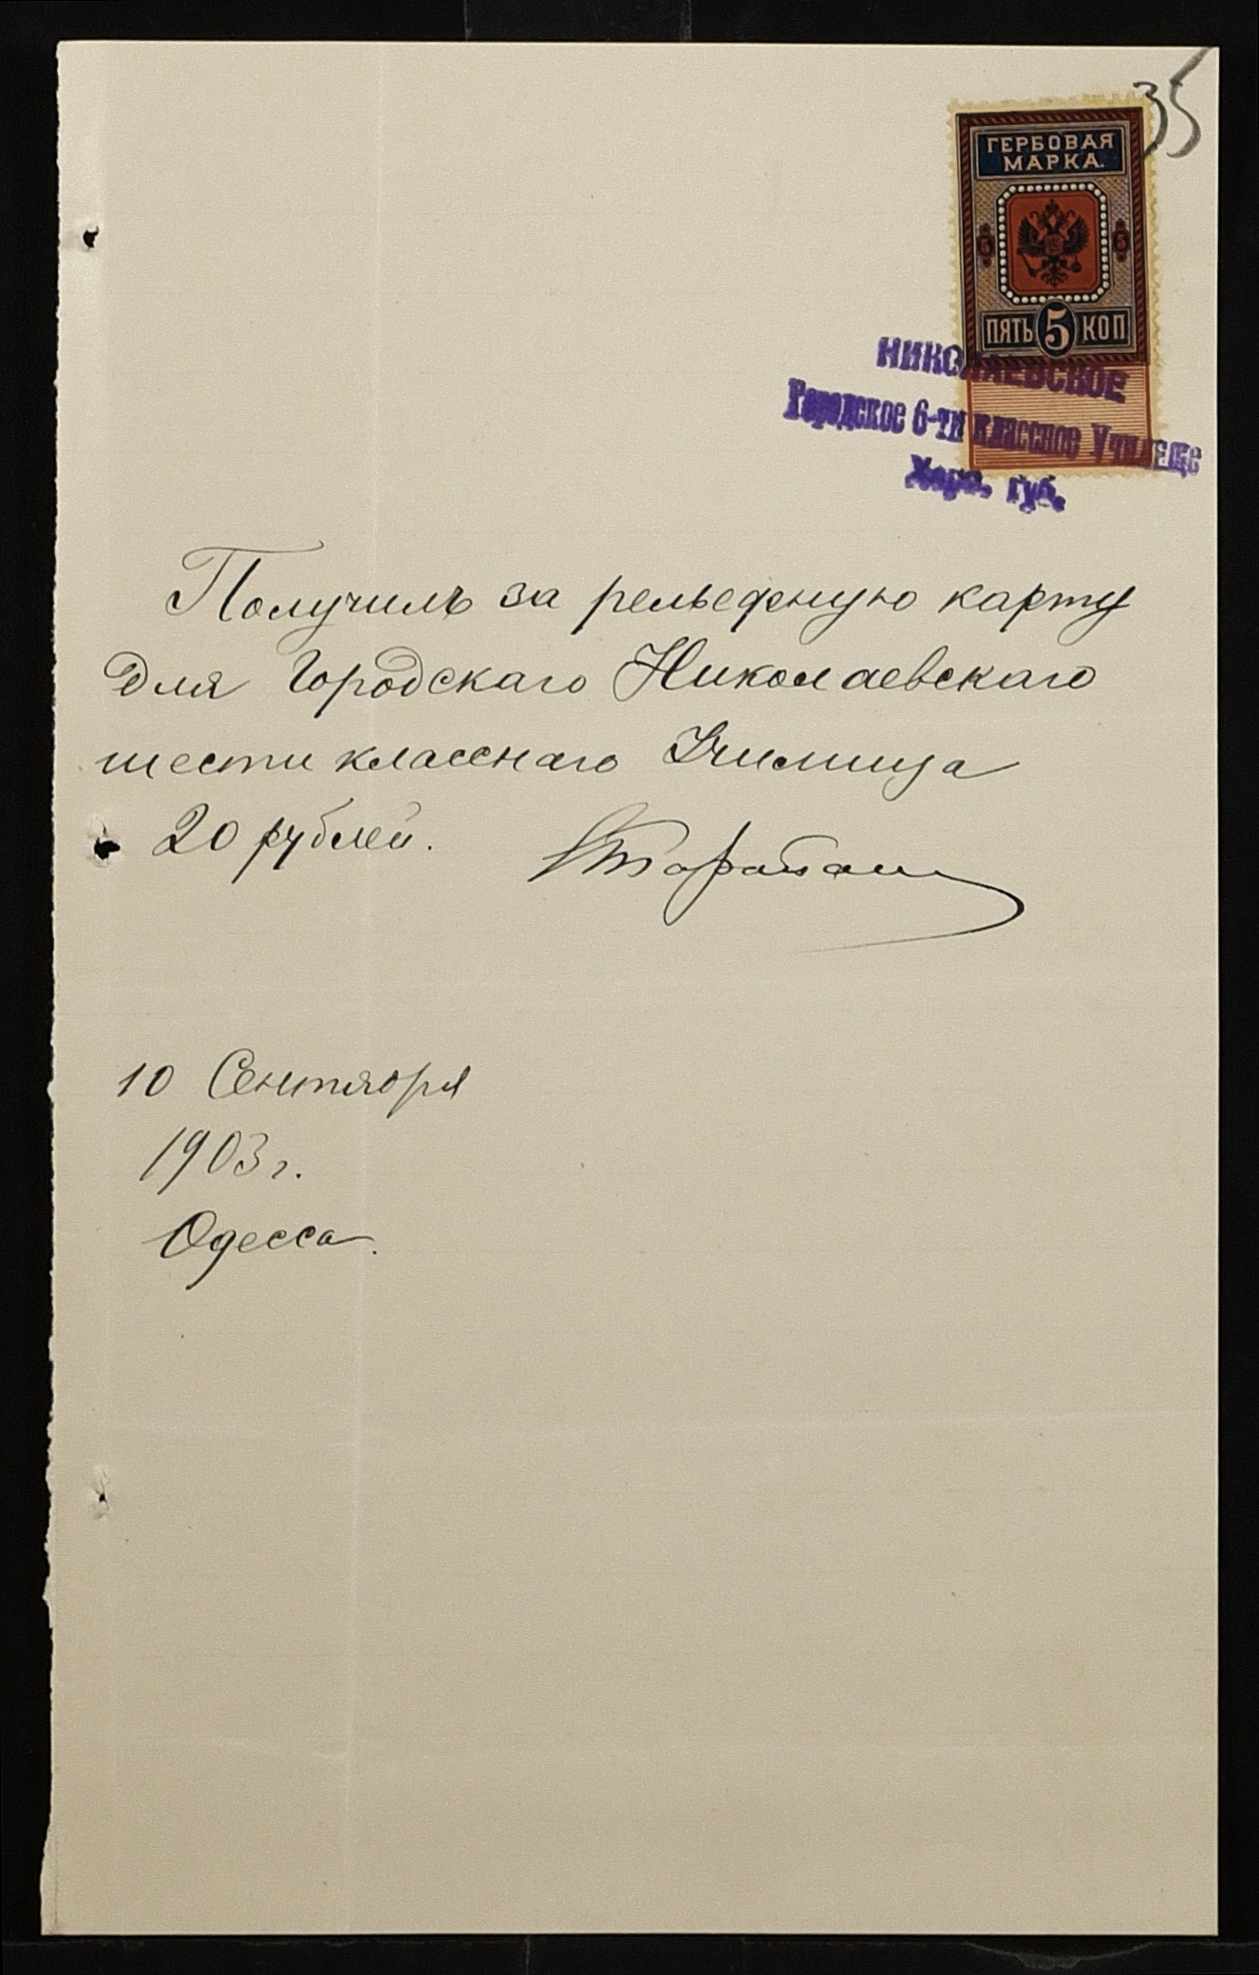 35
ГЕРБОВАЯ
МАРКА.
5 5
ПЯТЬ 5 КОП
НИКОЛАЕВСКОЕ
Городское 6-ти классное Училище
Херс. губ.
Получилъ за рельефную карту
для Городскаго Николаевскаго
шести класснаго Училища
20 рублей.
10 Сентября
1903 г.
Одесса.